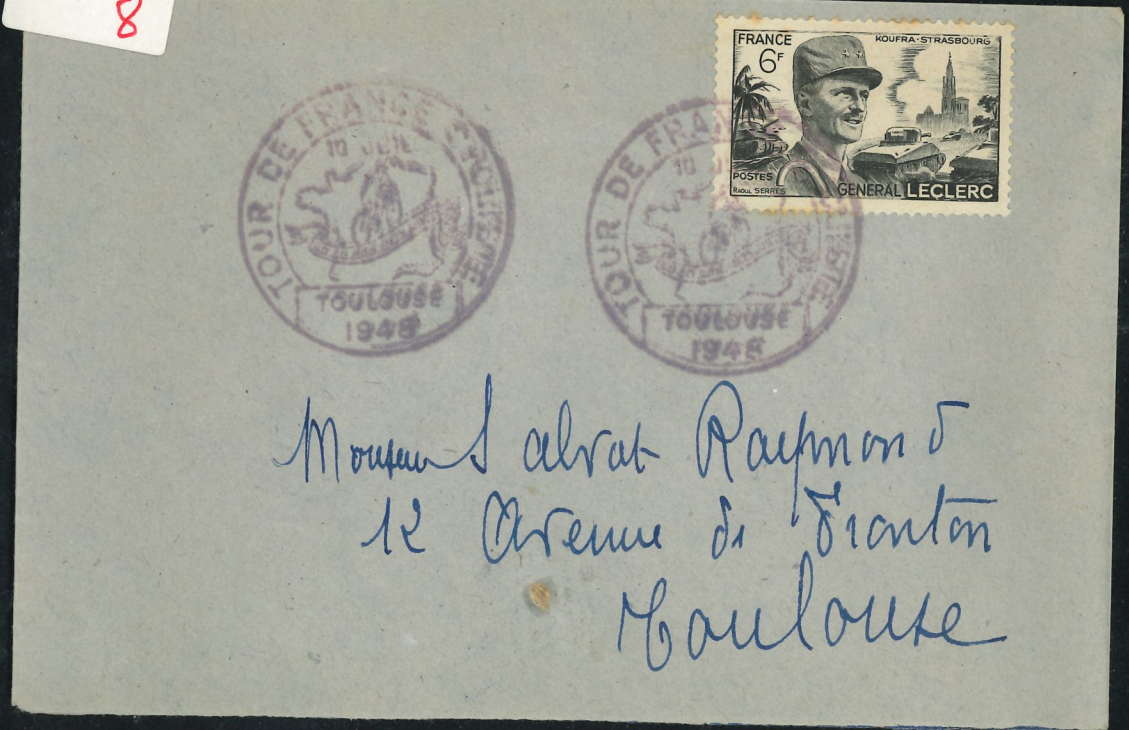 8
FRANCE
6F
KOUFRA-STRASBOURG
POSTES
RAOUL SERRES
GÉNÉRAL LECLERC
TOUR DE FRANCE CYCLISTE
10 JUIL
TOULOUSE
1948
TOUR DE FRANCE CYCLISTE
10
TOULOUSE
1948
Monsieur Salvat Raymond
12 Avenue de Fronton
Toulouse